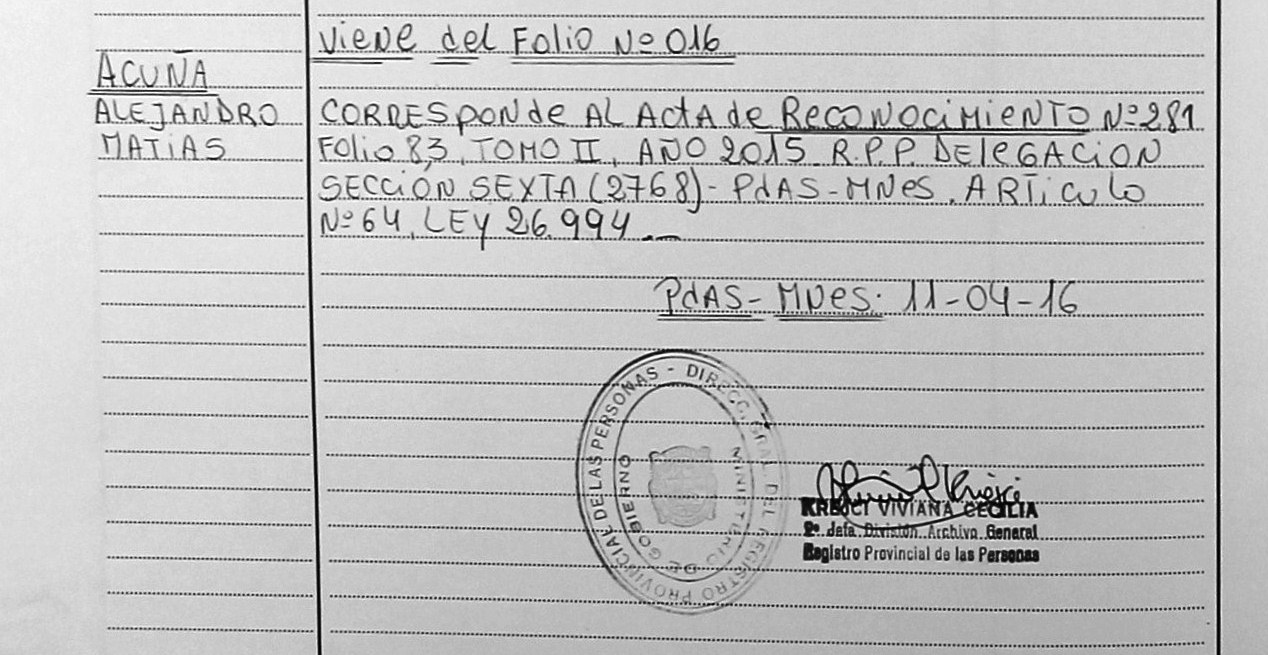 Viene del Folio Nº 016
ACUÑA
ALEJANDRO
MATIAS
CORRESponde AL ActA de ReCONOCiMieNTO Nº 281
Folio 83, TOMO II, AÑO 2015 R.P.P. DEleGACION
SECCION SEXTA (2768)- PdAS-MNes. ARTiculo
Nº 64, LEY 26.994.—
PdAS- MNes. 11-04-16
DIRECC. GRAL. DEL REGISTRO PROVINCIAL DE LAS PERSONAS -
MINISTERIO DE GOBIERNO
KREJCI VIVIANA CECILIA
2º Jefa División Archivo General
Registro Provincial de las Personas